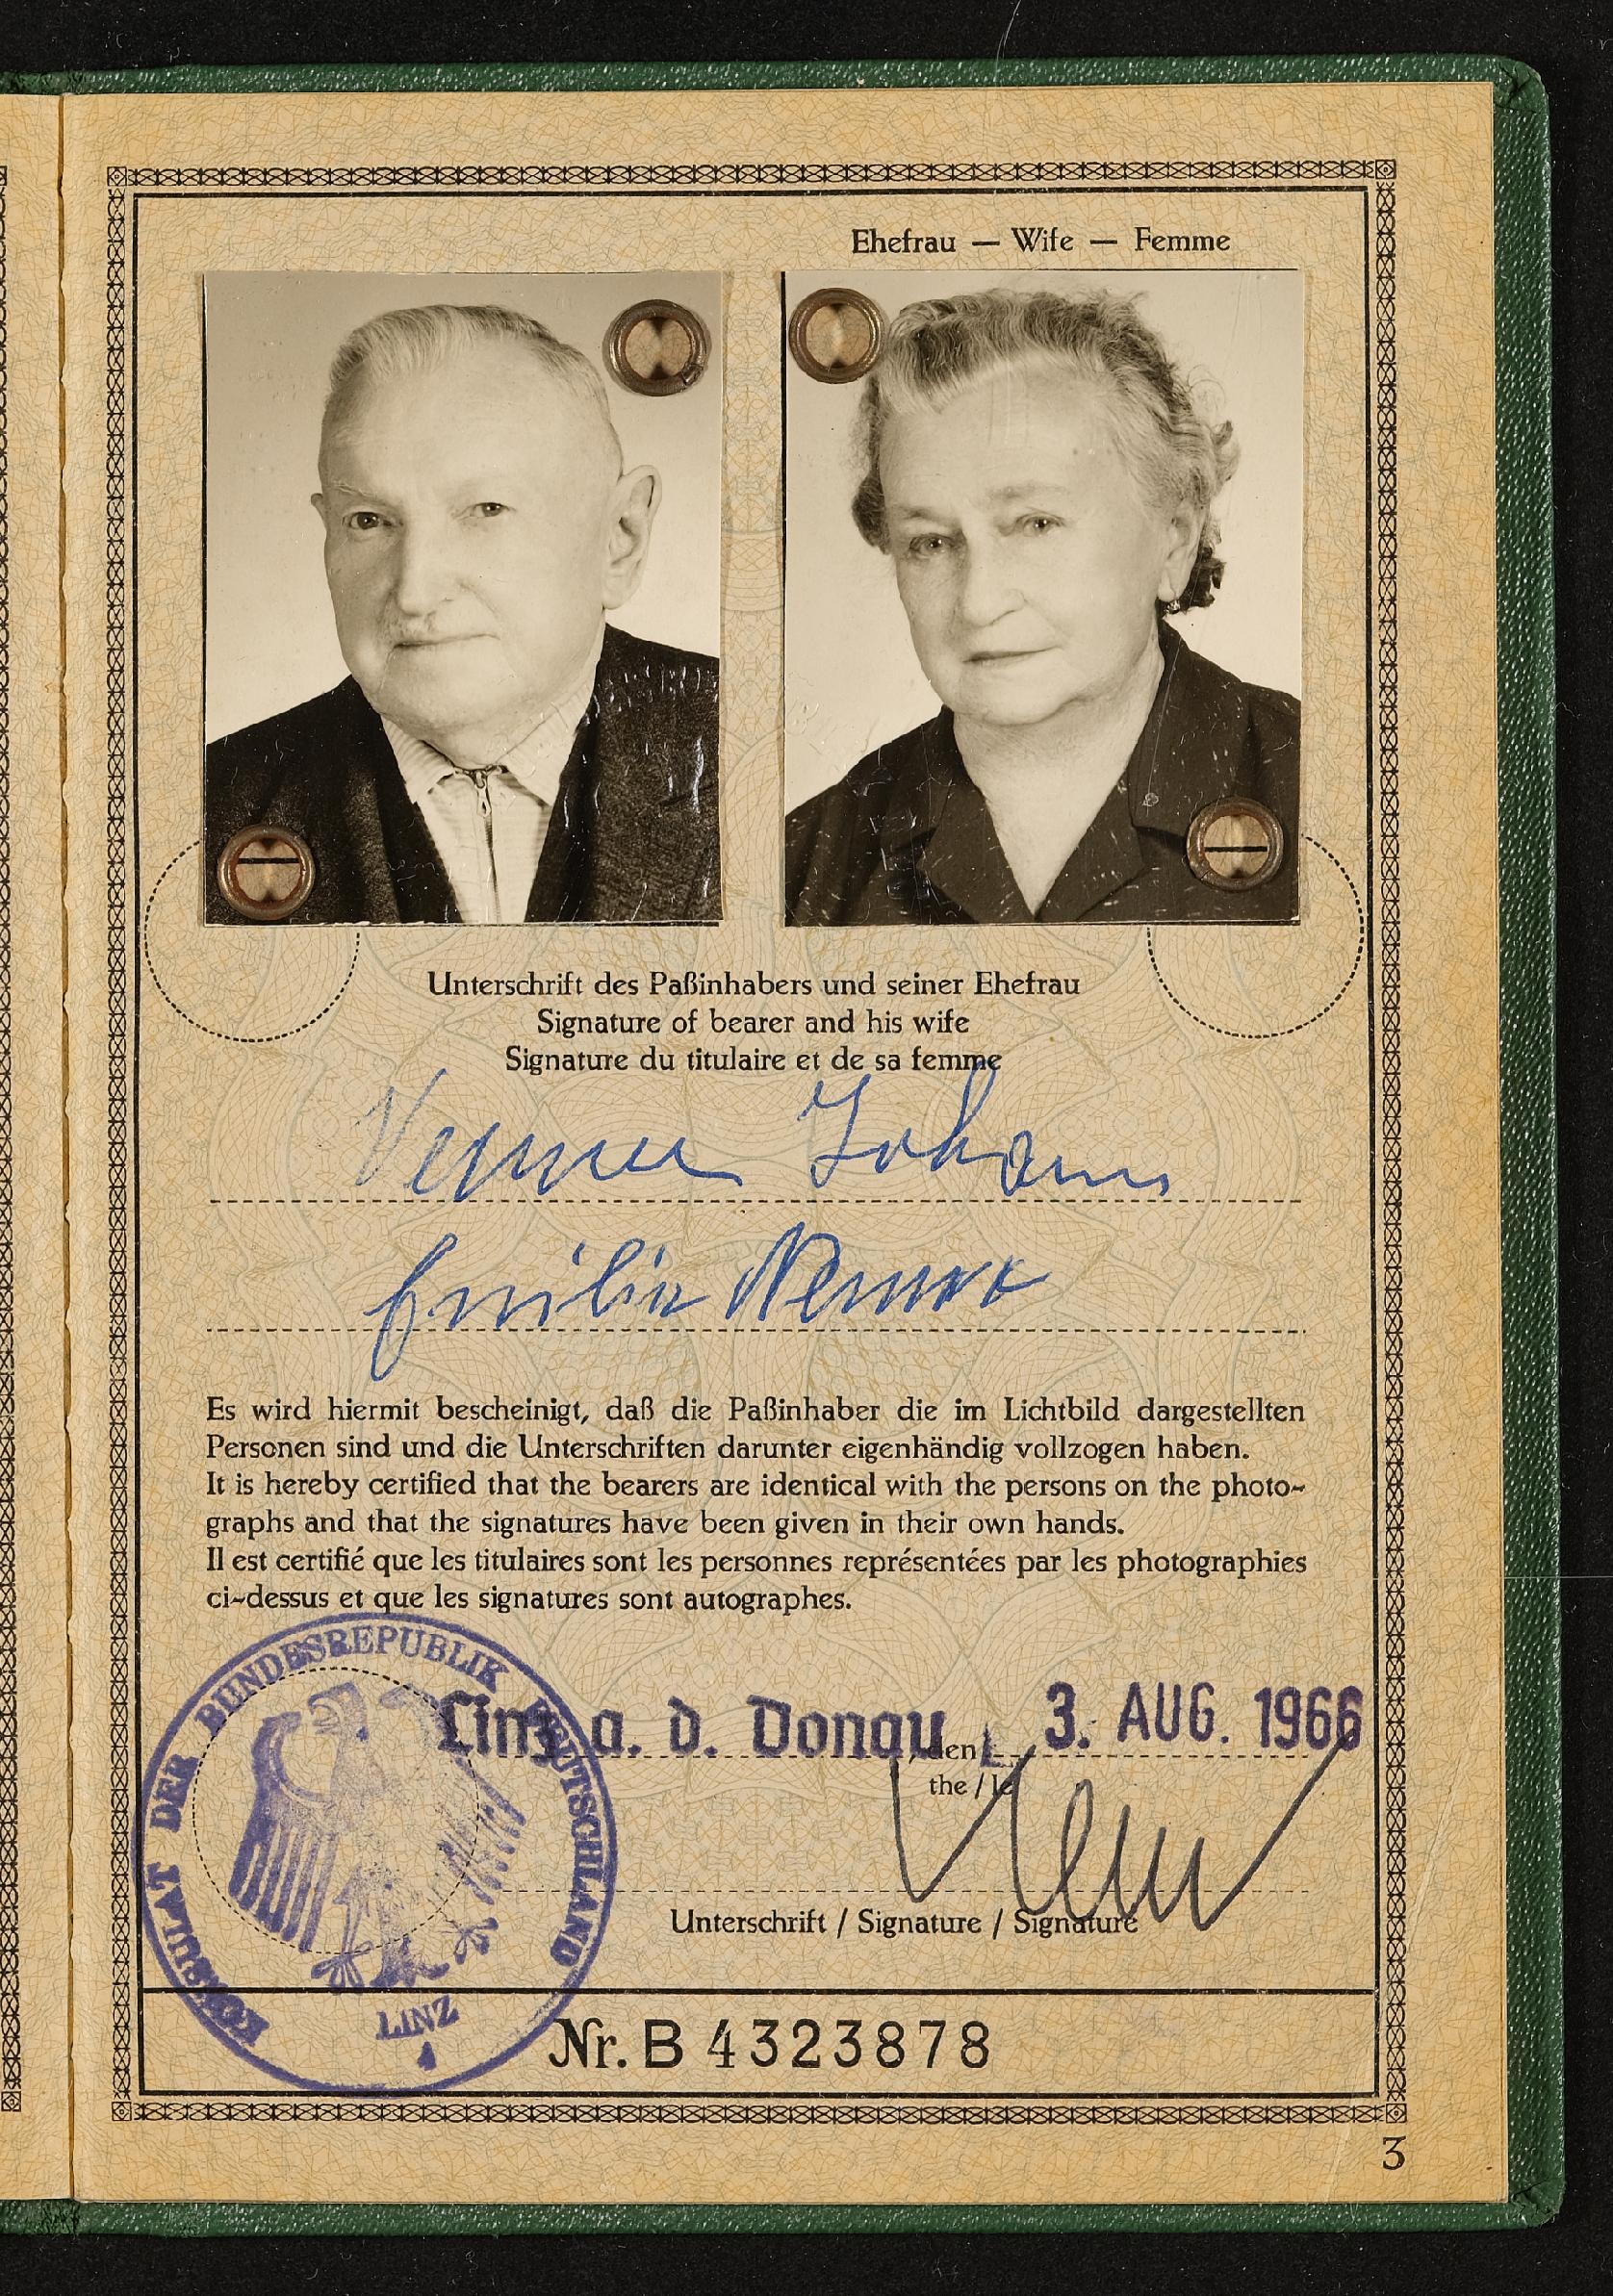 Ehefrau — Wife — Femme
Unterschrift des Paßinhabers und seiner Ehefrau
Signature of bearer and his wife
Signature du titulaire et de sa femme
Johann
Emilie
Es wird hiermit bescheinigt, daß die Paßinhaber die im Lichtbild dargestellten
Personen sind und die Unterschriften darunter eigenhändig vollzogen haben.
It is hereby certified that the bearers are identical with the persons on the photo-
graphs and that the signatures have been given in their own hands.
Il est certifié que les titulaires sont les personnes représentées par les photographies
ci-dessus et que les signatures sont autographes.
KONSULAT DER BUNDESREPUBLIK DEUTSCHLAND
LINZ
Linz a. d. Donau, den 3. AUG. 1966
the / le
Unterschrift / Signature / Signature
Nr. B 4323878
3